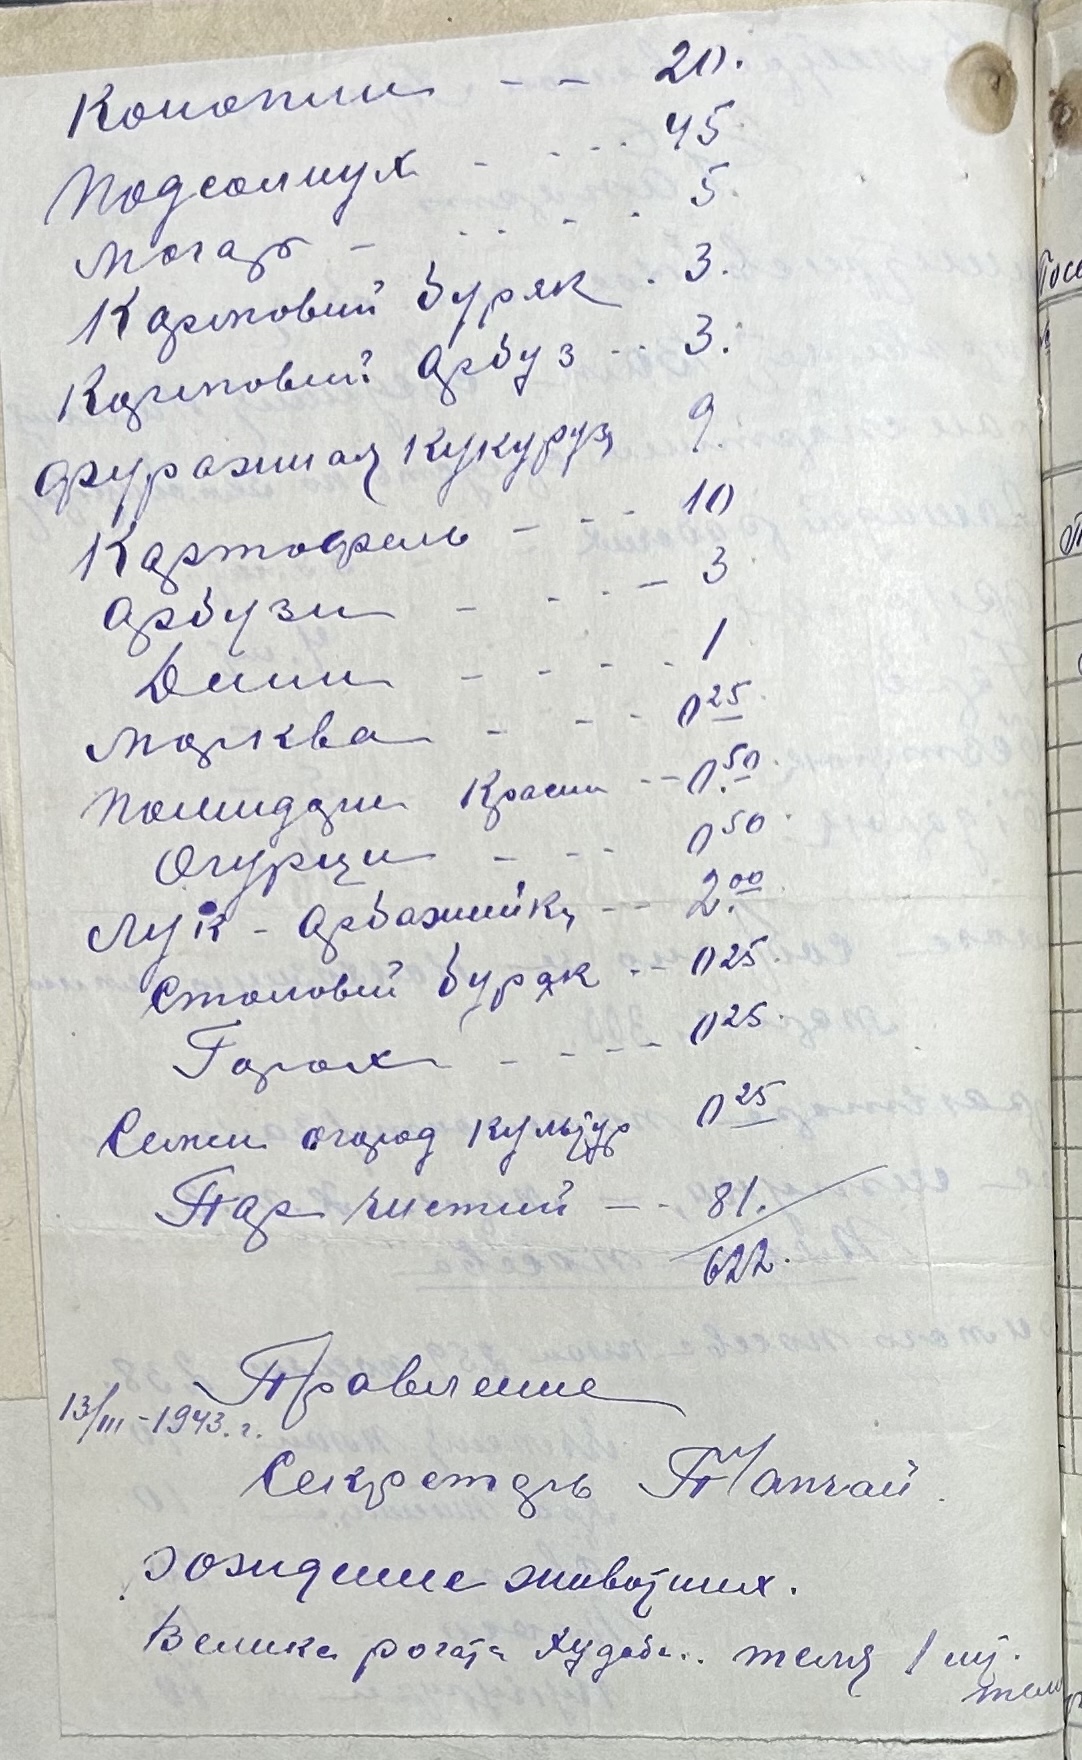 Конопли - - 20.
Подсолнух - - - - 45
Могар - - - - - 5.
Кормовий буряк . 3.
Кормовий арбуз - - 3.
Фуражная кукуруз 9.
Картофель - - - - 10
Арбузи - - - - 3
Дини - - - - - 1
Морква - - - - 0 25
Помидори Красни - - 0.50
Огурци - - - - 0 50
Лук - - - 2.00
Столовий буряк - - 0 25.
Горох - - - - - 0 25
Семен огород культур 0 25
Пар чистий - - 81.
622.
Правление
13/III-1943.г.
Секретарь
животних.
Велика рогата худоба.. теля 1 шт.